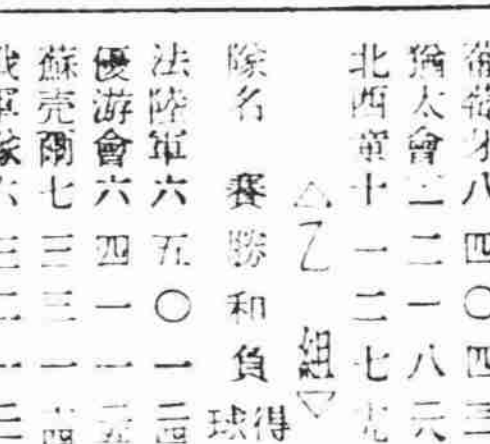 葡萄牙八四〇四三
猶太會二一八
北西軍十一二七九
△乙組▽
隊名賽勝和負得球
法陸軍六五〇一
優游會六四一一
蘇壳爾七三三一
軍隊六三二一